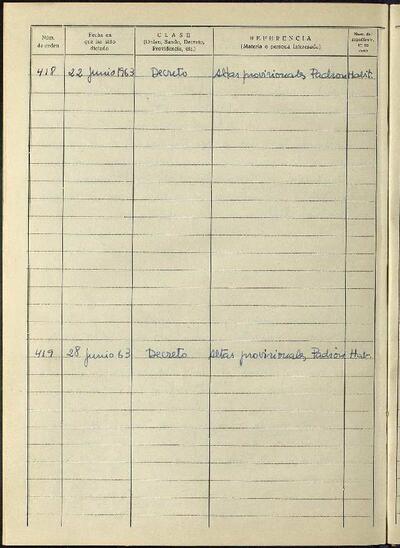 Núm. de orden
Fecha en que ha sido dictado
CLASE
(Orden, Bando, Decreto, Providencia, etc.)
REFERENCIA
(Materia o persona interesada)
Núm. de expediente, en su caso
418 22 Junio 1963 Decreto Altas provisionales Padron Habit.
419 28 Junio 63 Decreto Altas provisionales Padrón Hab.